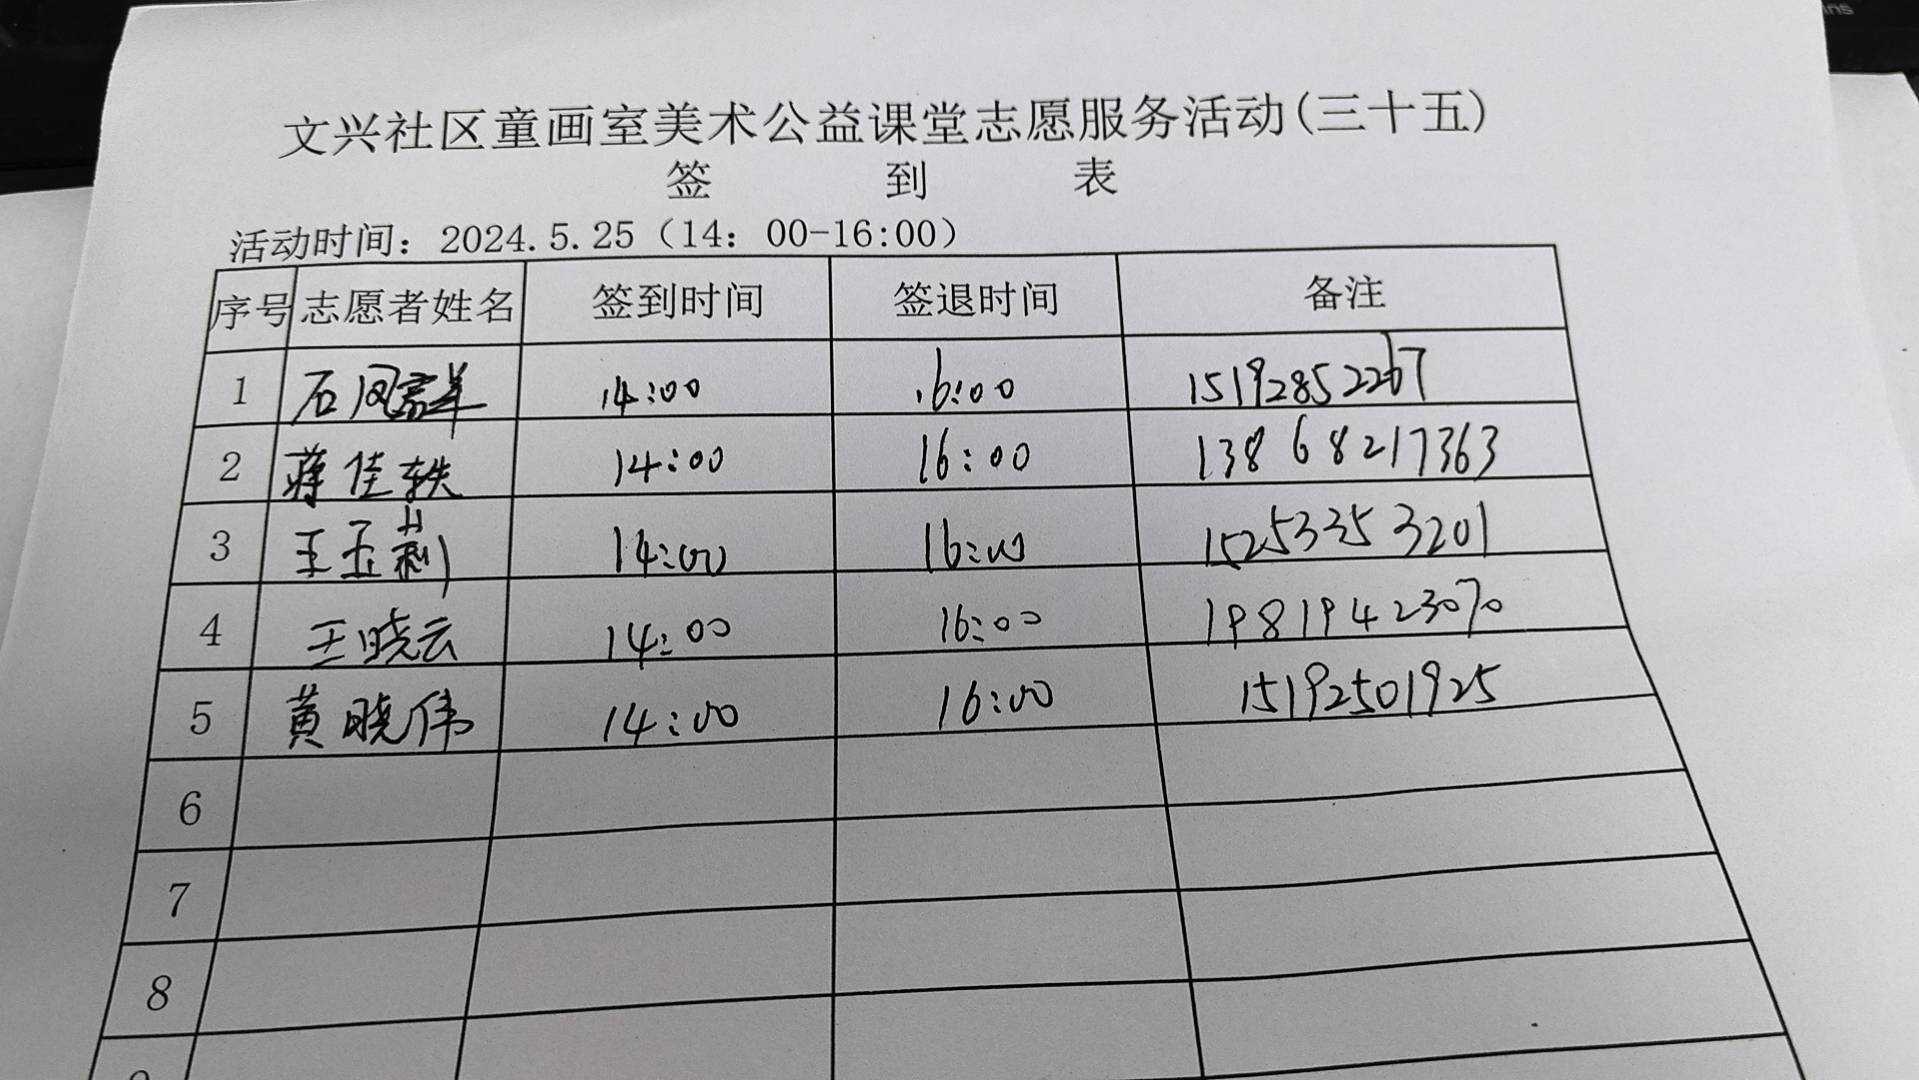 文兴社区童画室美术公益课堂志愿服务活动(三十五)
签 到 表
活动时间：2024.5.25（14：00-16:00）
序号 志愿者姓名 签到时间 签退时间 备注
1 石凤 14:00 16:00 15192852267
2 蒋佳轶 14:00 16:00 13868217363
3 王玉莉 14:00 16:00 15253353201
4 王晓云 14:00 16:00 19819423070
5 黄晓伟 14:00 16:00 15192501925
6
7
8